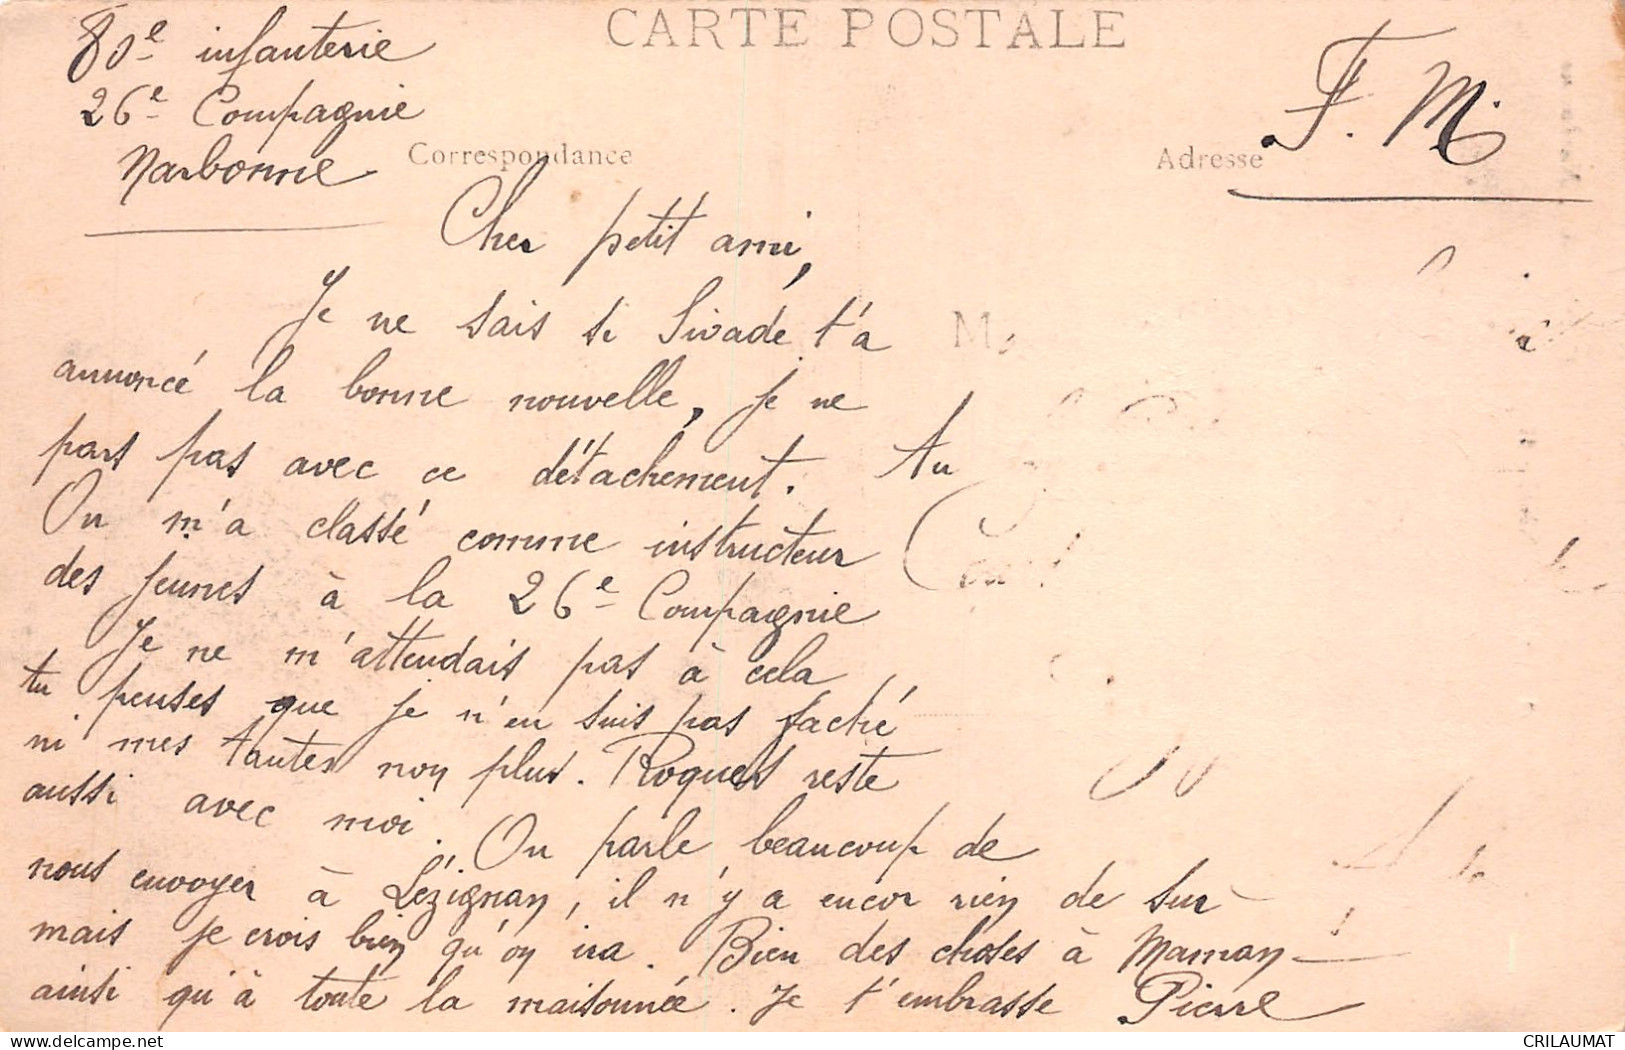 CARTE POSTALE
80e infanterie
26e Compagnie
Narbonne
Correspondance
Adresse
F. M.
Cher petit ami,
Je ne sais si Sivade t'a
annoncé la bonne nouvelle, je ne
pars pas avec ce détachement. Au
On m'a classé comme instructeur
des jeunes à la 26e Compagnie
Je ne m'attendais pas à cela
tu penses que je n'en suis pas faché
ni mes tantes non plus. Roques reste
aussi avec moi. On parle beaucoup de
nous envoyer à Lézignan, il n'y a encor rien de sur
mais je crois bien qu'on ira. Bien des choses à Maman
ainsi qu'à toute la maisonnée. Je t'embrasse Pierre
CRILAUMAT